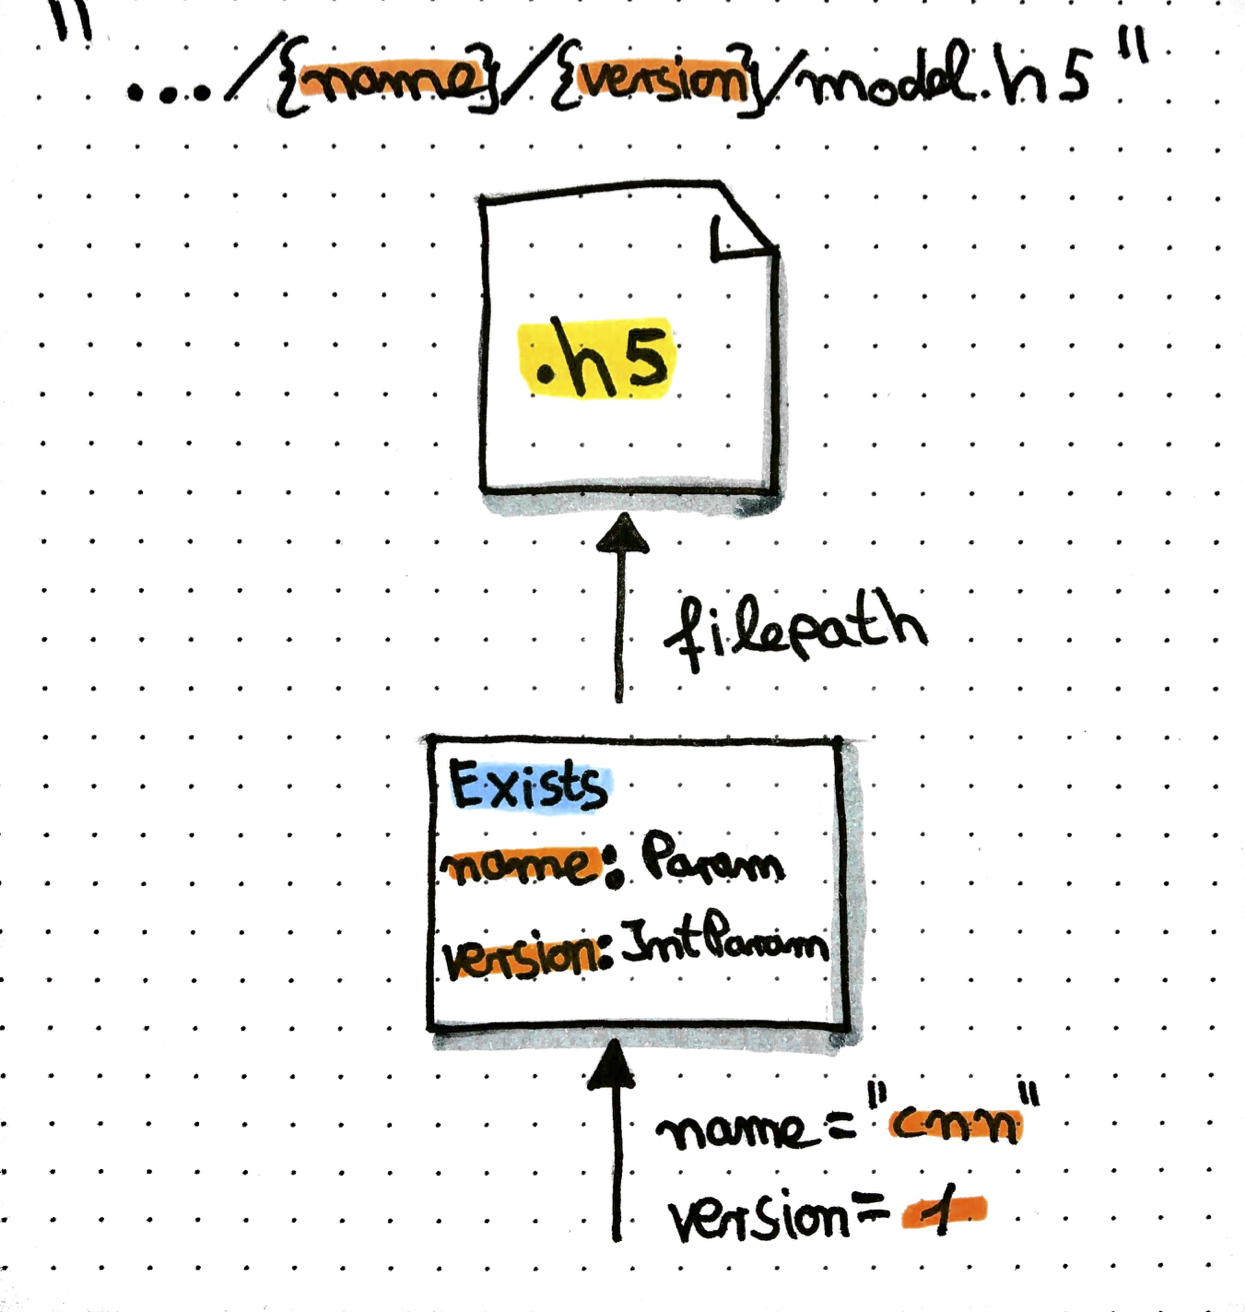 ".../{name}/{version}/model.h5"
.h5
filepath
Exists
name: Param
version: IntParam
name="cnn"
version=1